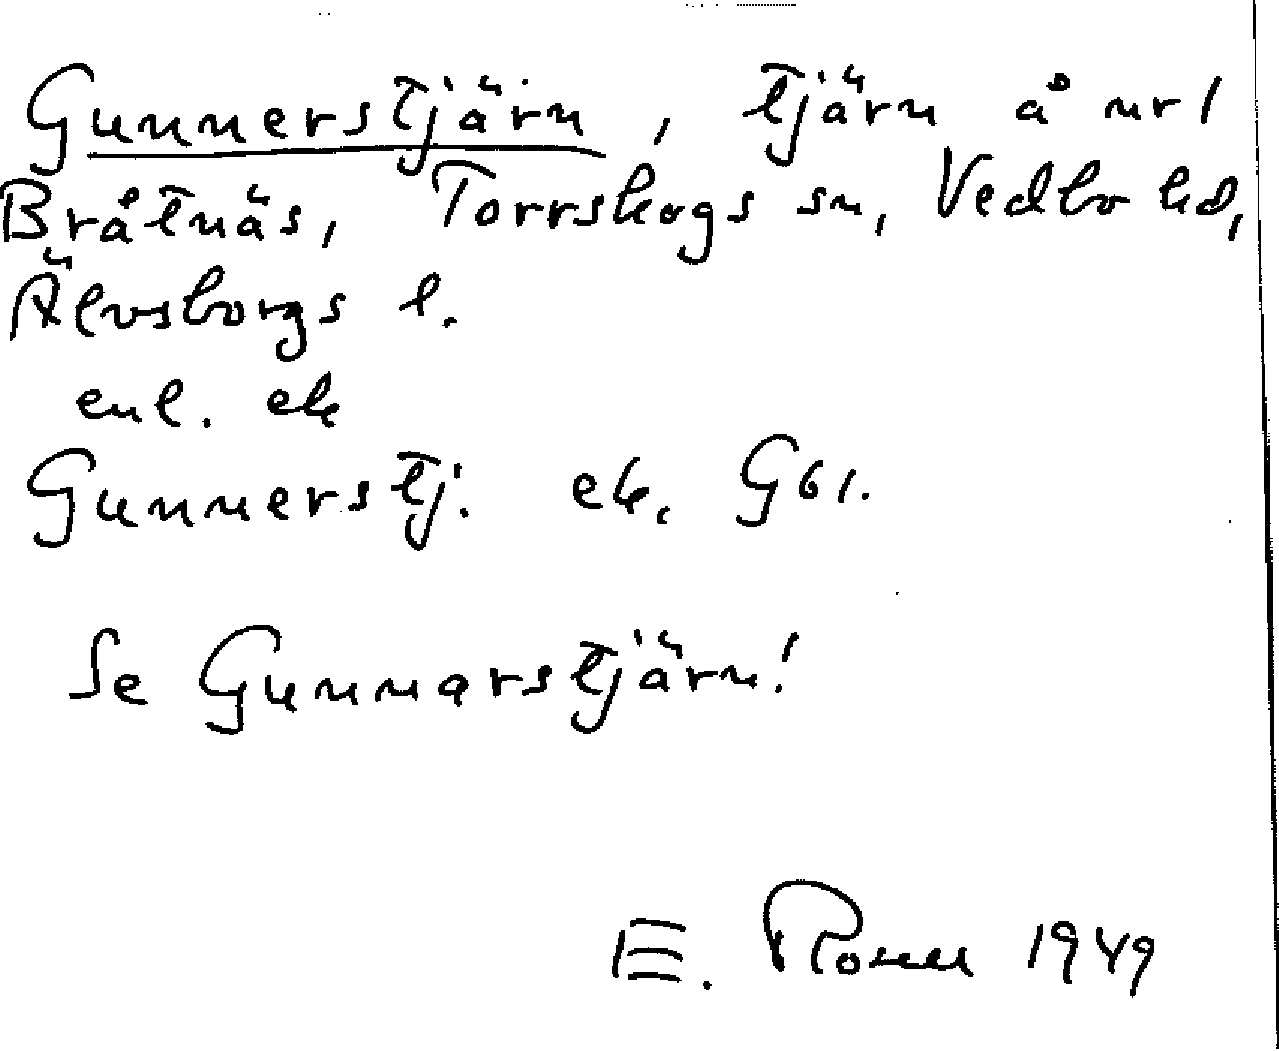 Gunnerstjärn, tjärn å nr 1
Bråtnäs, Torrskogs sn, Vedbo hd,
Älvsborgs l.
enl. ek
Gunnerstj. ek. G61.
Se Gunnarstjärn!
E. 1949